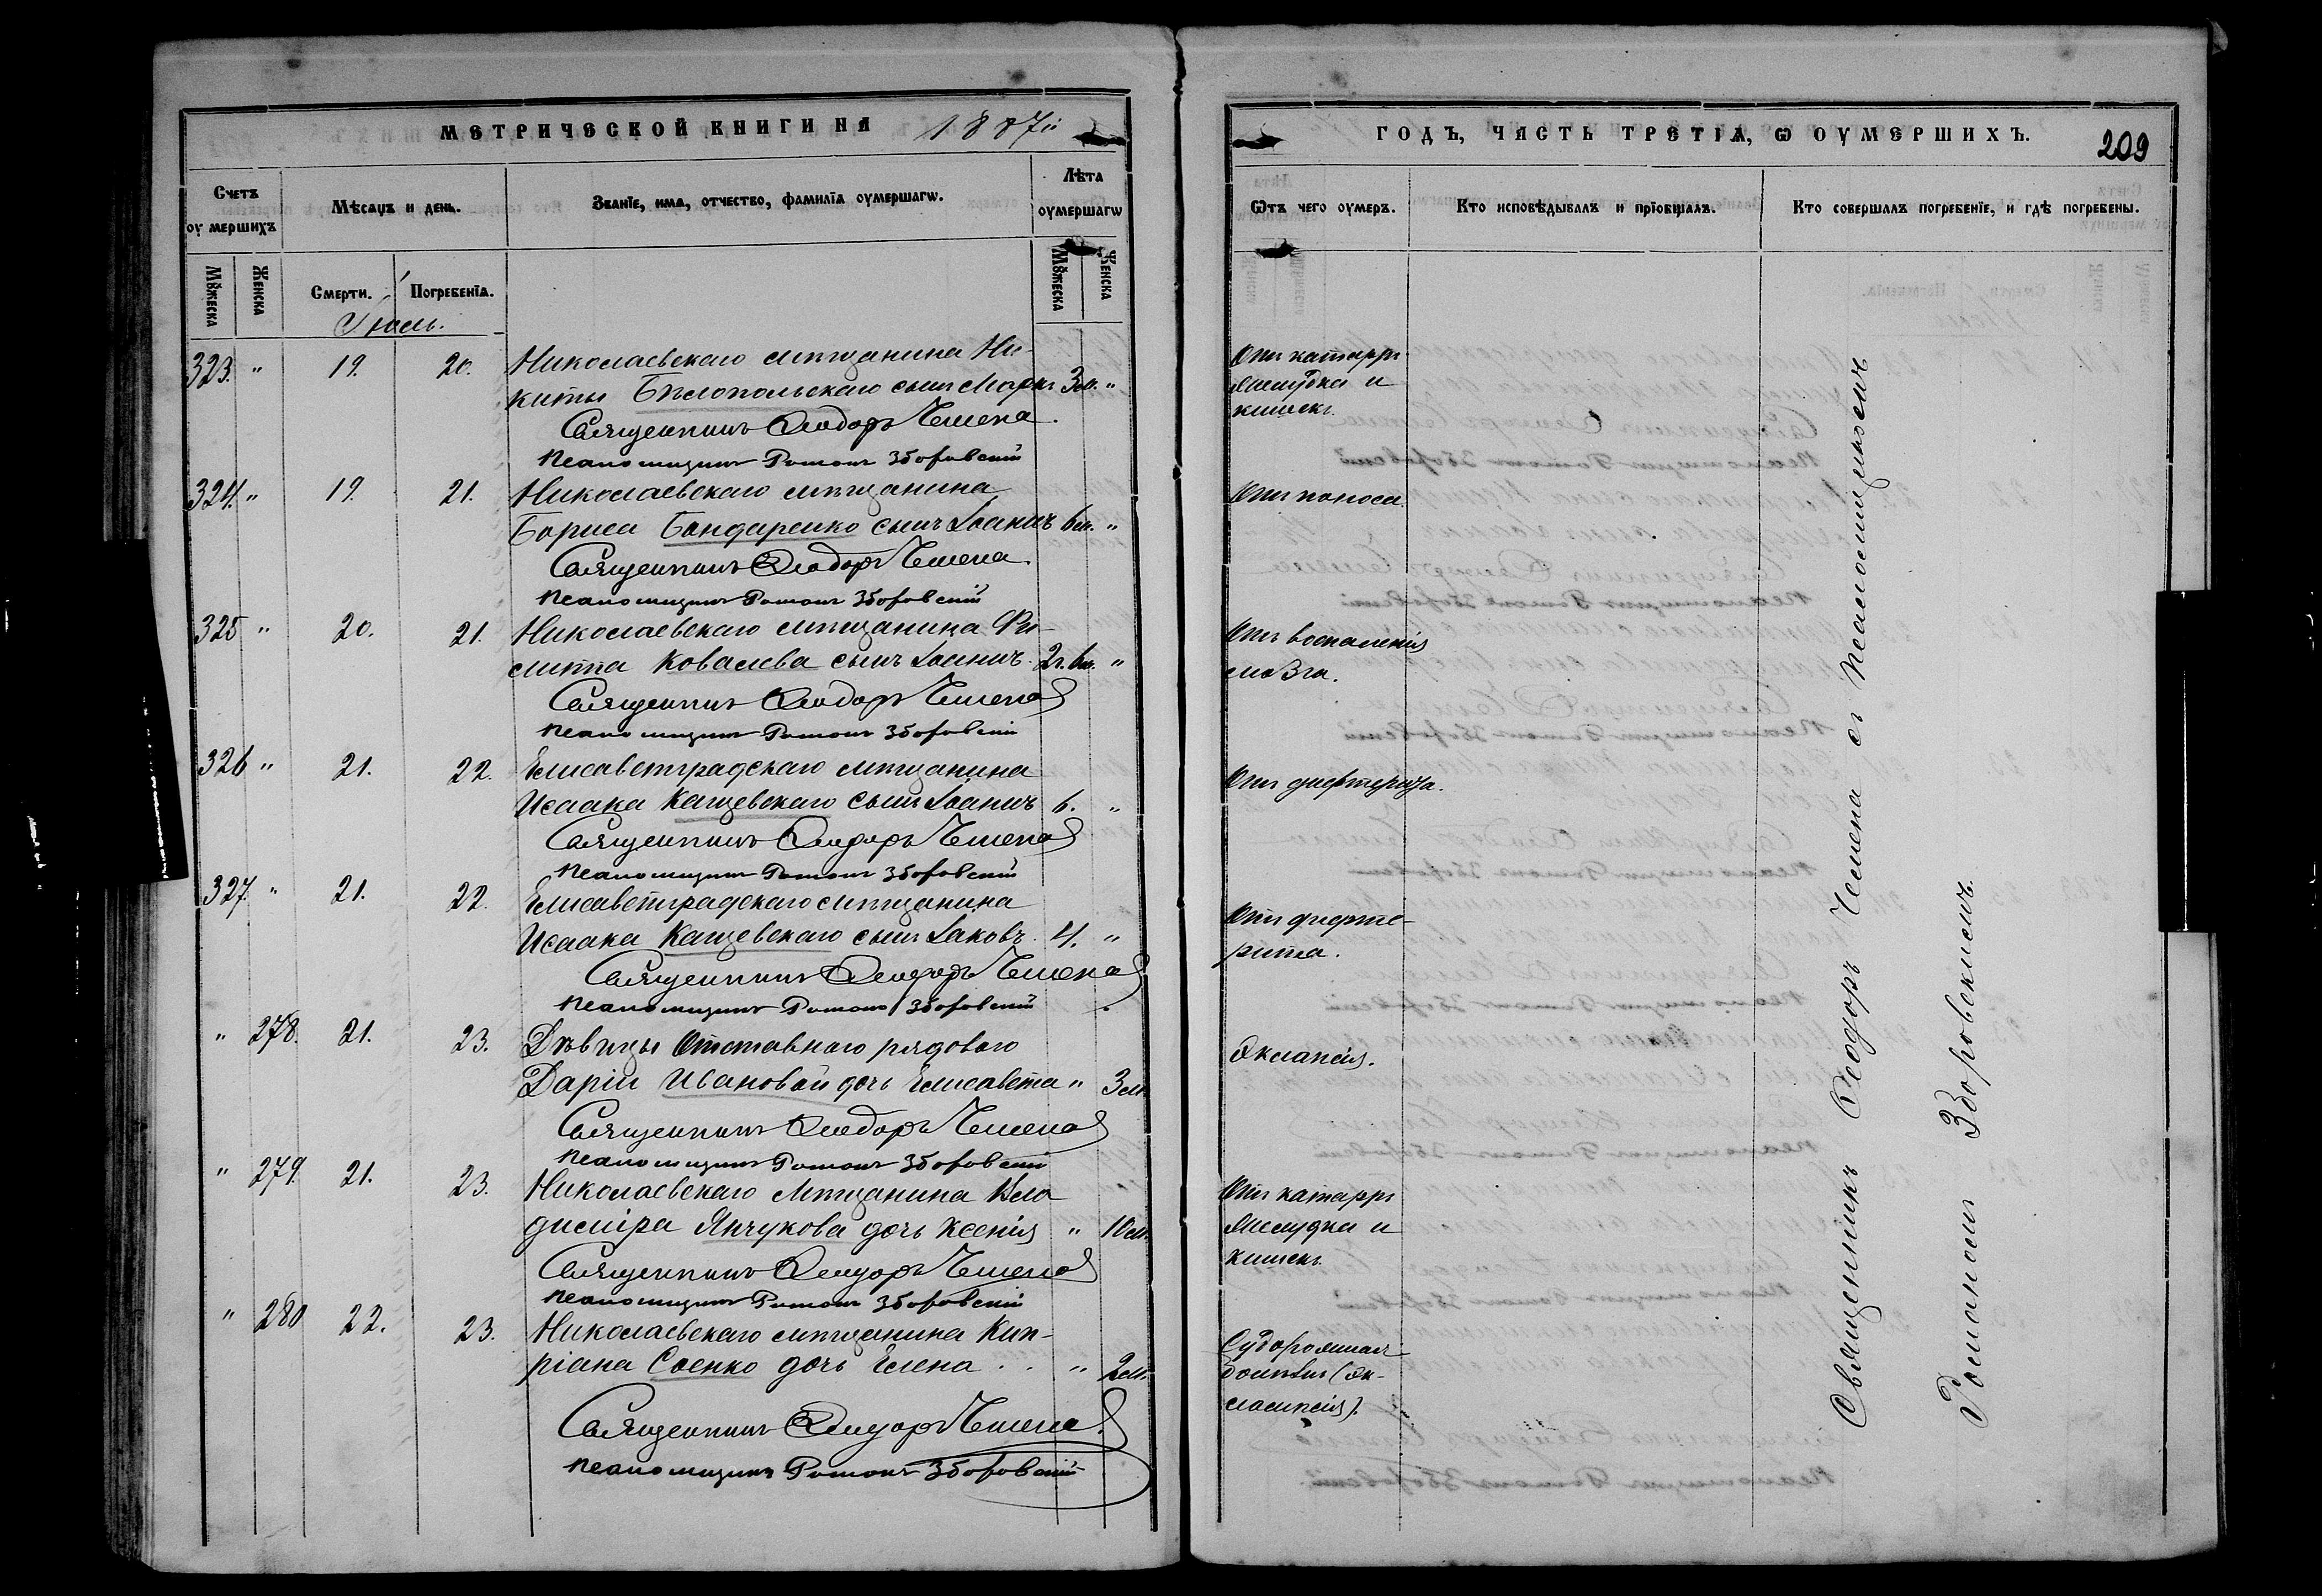 МЕТРИЧЕСКОЙ КНИГИ НА 1887й
ГОДЪ, ЧАСТЬ ТРЕТІѦ, Ѡ ОУМЕРШИХЪ.
209
Счетъ оумершихъ
Мѣсяцъ и день.
Званїе, имѧ, отчество, фамилїѧ оумершагѡ.
Лѣта оумершагѡ
Ѿтъ чего оумеръ.
Кто исповѣдывалъ и прїобщалъ.
Кто совершалъ погребенїе, и гдѣ погребены.
Мꙋжеска
Женска
Смерти.
Погребенїѧ.
Мꙋжеска
Женска
Іюль.
323. " 19. 20. Николаевскаго мѣщанина Ни-
киты Бѣлопольскаго сынъ Маркъ 3м. "
Отъ катарра
желудка и
кишекъ.
Священникъ Ѳеодоръ Чемена.
Псаломщикъ Романъ Зборовскій
324. " 19. 21. Николаевскаго мѣщанина
Бориса Бондаренко сынъ Іоаннъ 6м. "
Отъ поноса.
Священникъ Ѳеодоръ Чемена.
Псаломщикъ Романъ Зборовскій
325 " 20. 21. Николаевскаго мѣщанина Фи-
липпа Ковалева сынъ Іоаннъ 2г. 6м. "
Отъ воспаленія
мозга.
Священникъ Ѳеодоръ Чемена
Псаломщикъ Романъ Зборовскій
326 " 21. 22. Елисаветградскаго мѣщанина
Исаака Кащевскаго сынъ Іоаннъ 6. "
Отъ дифтерита.
Священникъ Ѳеодоръ Чемена
Псаломщикъ Романъ Зборовскій
327. " 21. 22. Елисаветградскаго мѣщанина
Исаака Кащевскаго сынъ Іаковъ 4. "
Отъ дифте-
рита.
Священникъ Ѳеодоръ Чемена
Псаломщикъ Романъ Зборовскій
" 278. 21. 23. Дѣвицы Отставнаго рядоваго
Даріи Ивановой дочь Елисавета " 3м.
Эклапсія.
Священникъ Ѳеодоръ Чемена
Псаломщикъ Романъ Зборовскій
" 279. 21. 23. Николаевскаго Мѣщанина Вла-
диміра Янчукова дочь Ксенія " 10м.
Отъ катарра
желудка и
кишекъ
Священникъ Ѳеодоръ Чемена
Псаломщикъ Романъ Зборовскій
" 280 22. 23. Николаевскаго мѣщанина Кип-
ріана Соенко дочь Елена . . " 2м.
Священникъ Ѳеодоръ Чемена.
Псаломщикъ Романъ Зборовскій
Священникъ Ѳеодоръ Чемена съ Псаломщикомъ
Романомъ Зборовскимъ.